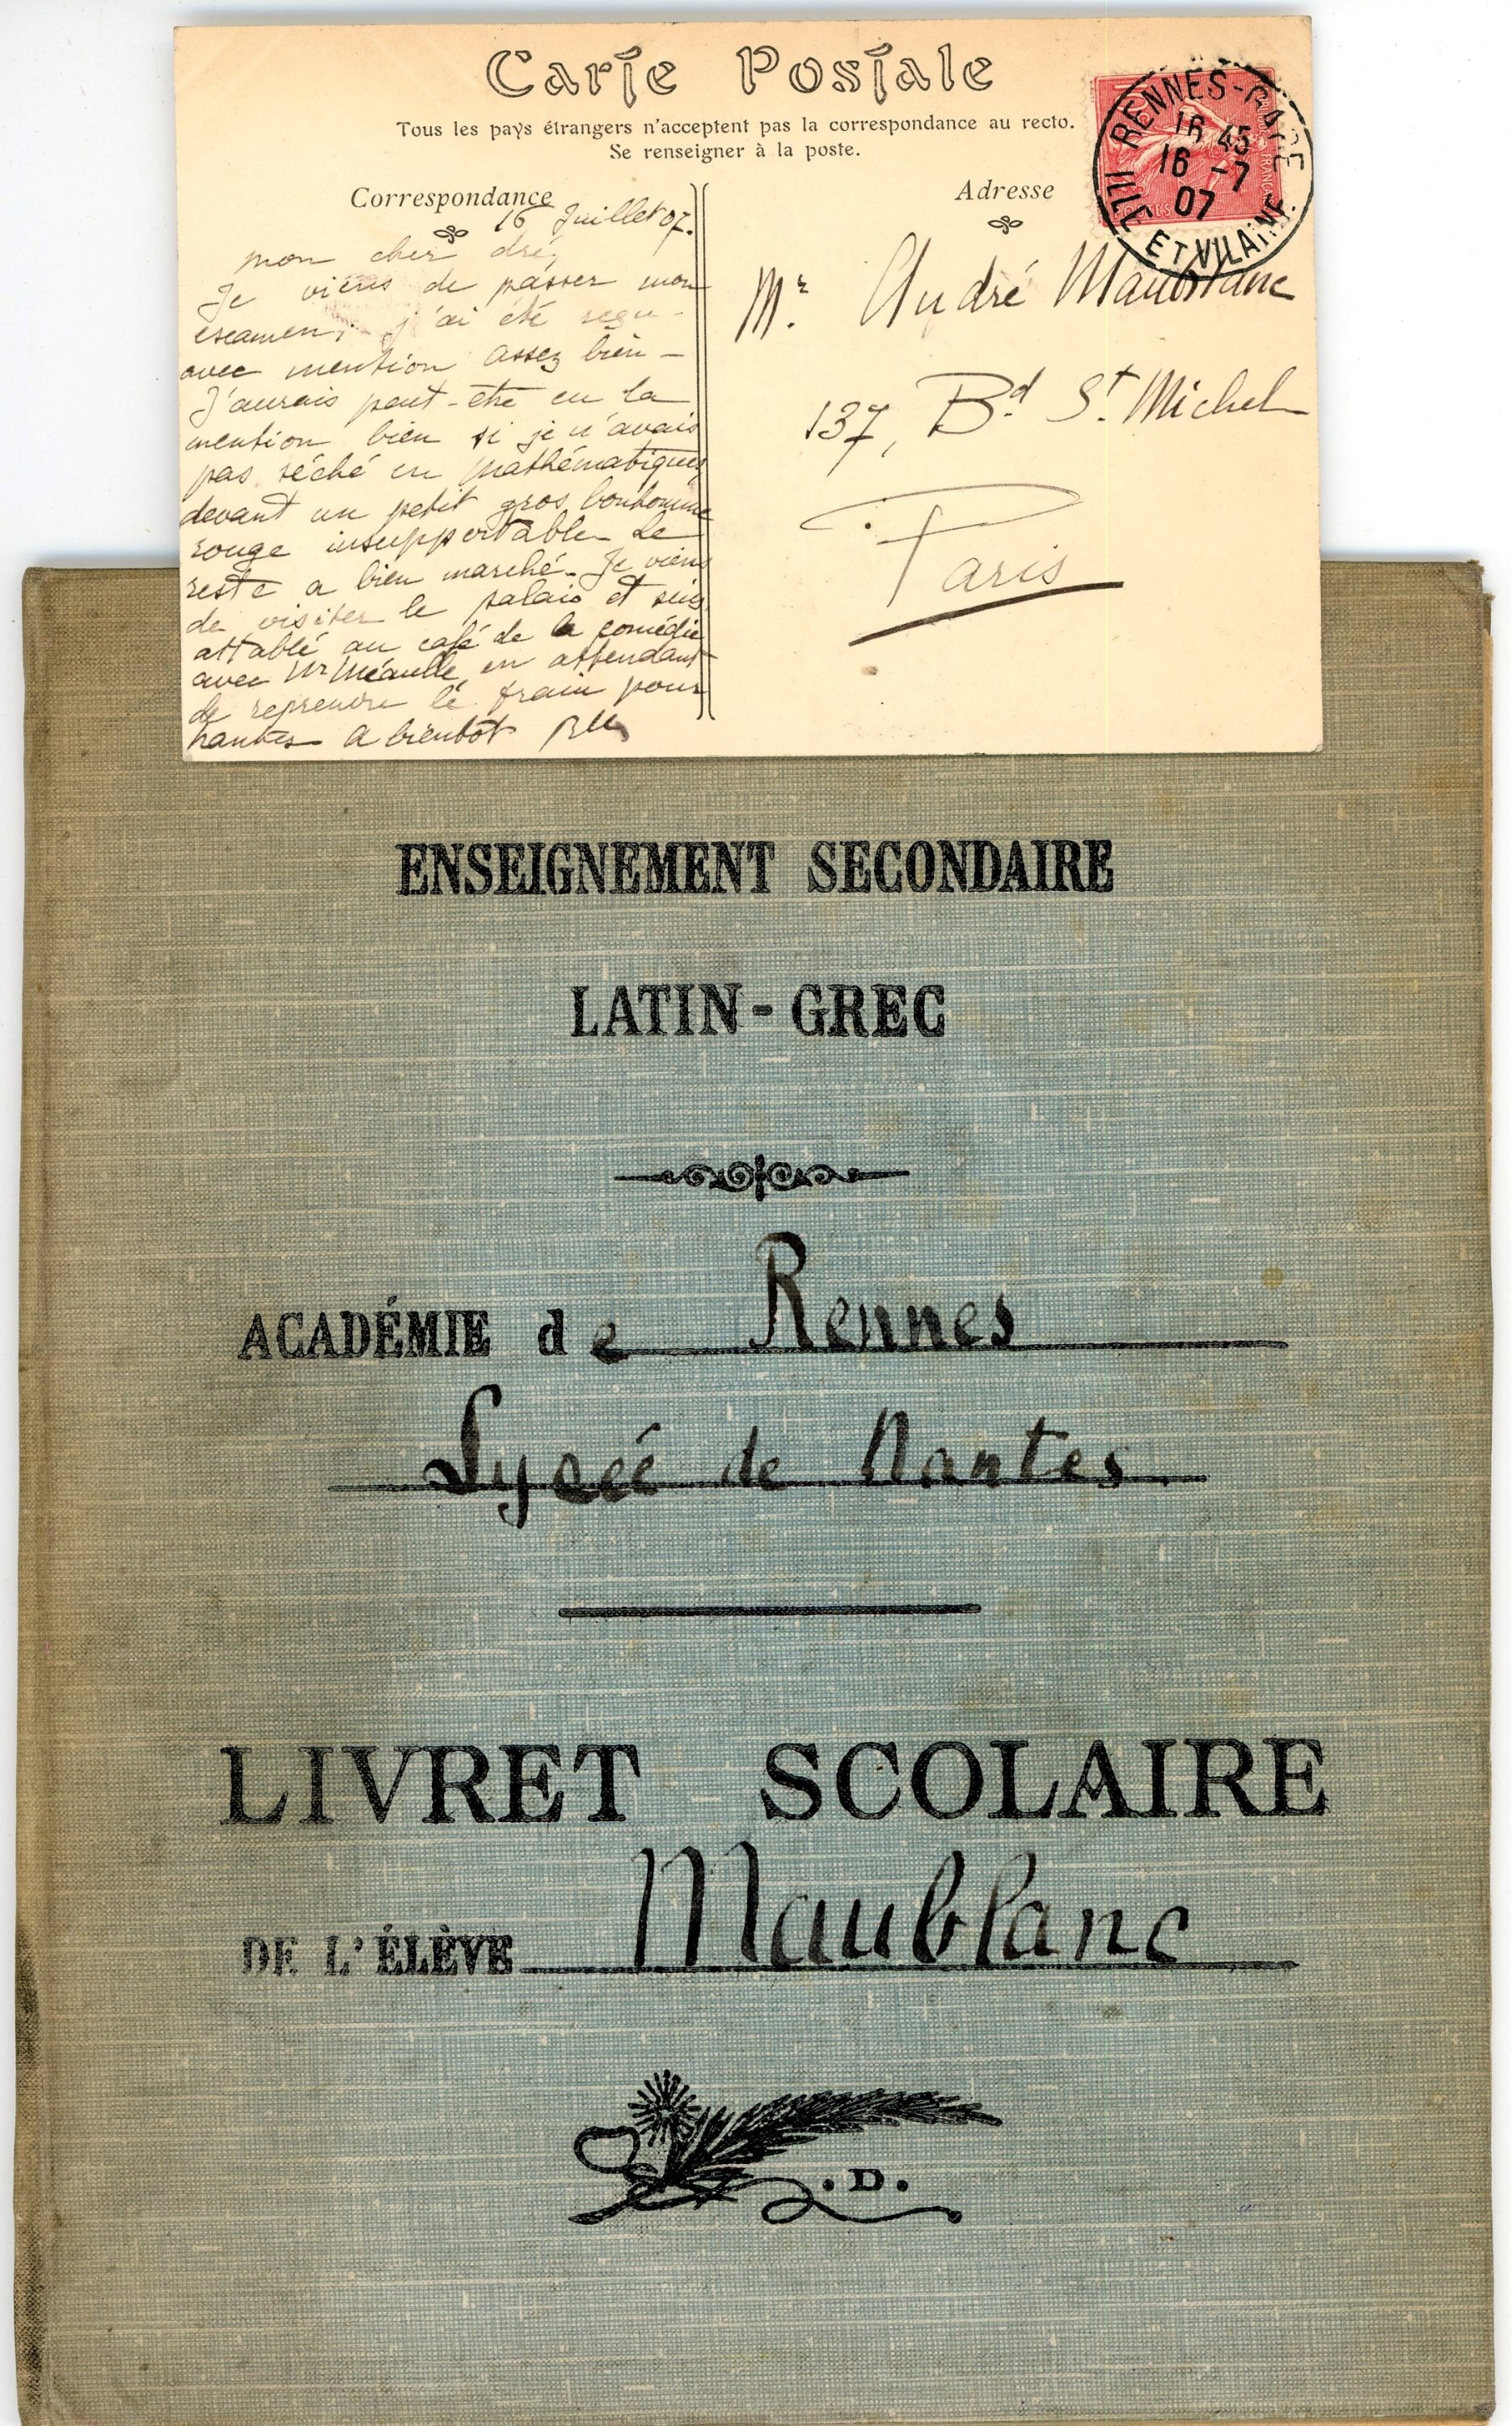 Carte Postale
Tous les pays étrangers n'acceptent pas la correspondance au recto.
Se renseigner à la poste.
Correspondance
Adresse
RENNES-GARE
16 45
16 -7
07
ILLE ET VILAINE
16 Juillet 07.
mon cher dré,
Je viens de passer mon
examen, j'ai été reçu -
avec mention assez bien -
J'aurais peut-être eu la
mention bien si je n'avais
pas séché en mathématiques
devant un petit gros bonhomme
rouge insupportable. Le
reste a bien marché. Je viens
de visiter le palais et suis
attablé au café de la comédie
avec Mr Méaulle en attendant
de reprendre le train pour
nantes a bientôt
Mr. André Maublanc
137, Bd St Michel
Paris
ENSEIGNEMENT SECONDAIRE
LATIN-GREC
ACADÉMIE de Rennes
Lycée de Nantes
LIVRET SCOLAIRE
DE L'ÉLÈVE Maublanc
.D.